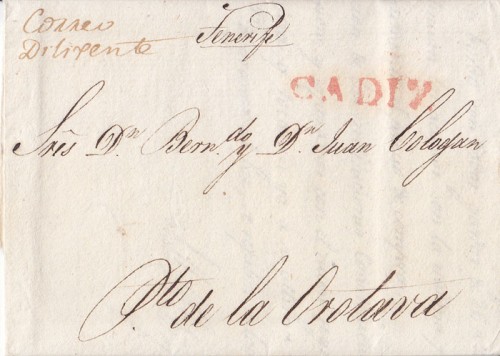 Correo
Diligente
Tenerife
CADIZ
Srēs Dn Berndo y Dn Juan Cologan
Pto de la Orotava